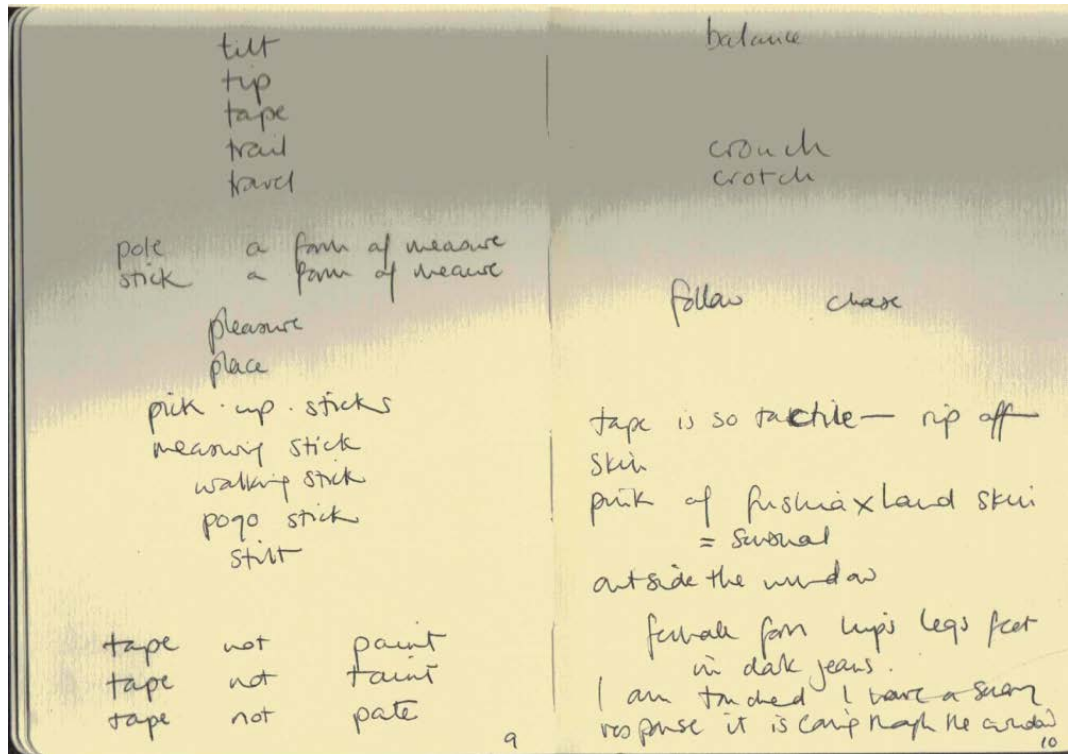 tilt
tip
tape
trail
travel
pole a form of measure
stick a form of measure
pleasure
place
pick · up · sticks
measuring stick
walking stick
pogo stick
stilt
tape not paint
tape not taint
tape not pate
9
balance
crouch
crotch
follow chase
tape is so tactile — rip off
skin
pink of fushia x hand skin
= sensual
outside the window
female form hips legs feet
in dark jeans.
I am touched I have a
response it is coming through the window
10